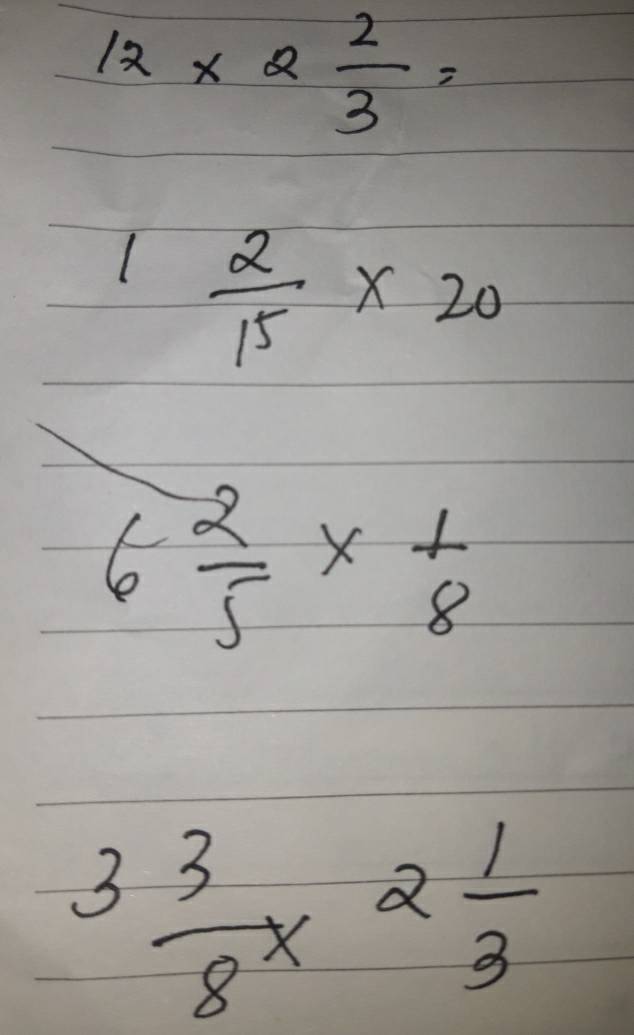 12 × 2 2/3 =
1 2/15 × 20
6 2/5 × 1/8
3 3/8 × 2 1/3